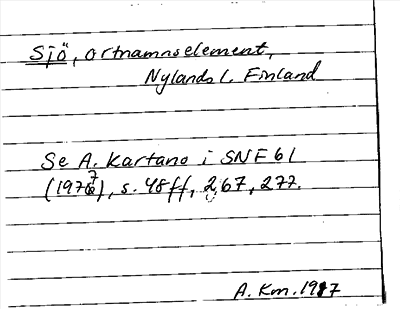 Sjö, ortnamnselement,
Nylands l. Finland
Se A. Kartano i SNF 61
(1977), s. 48 ff, 267, 277.
A. Km. 1977